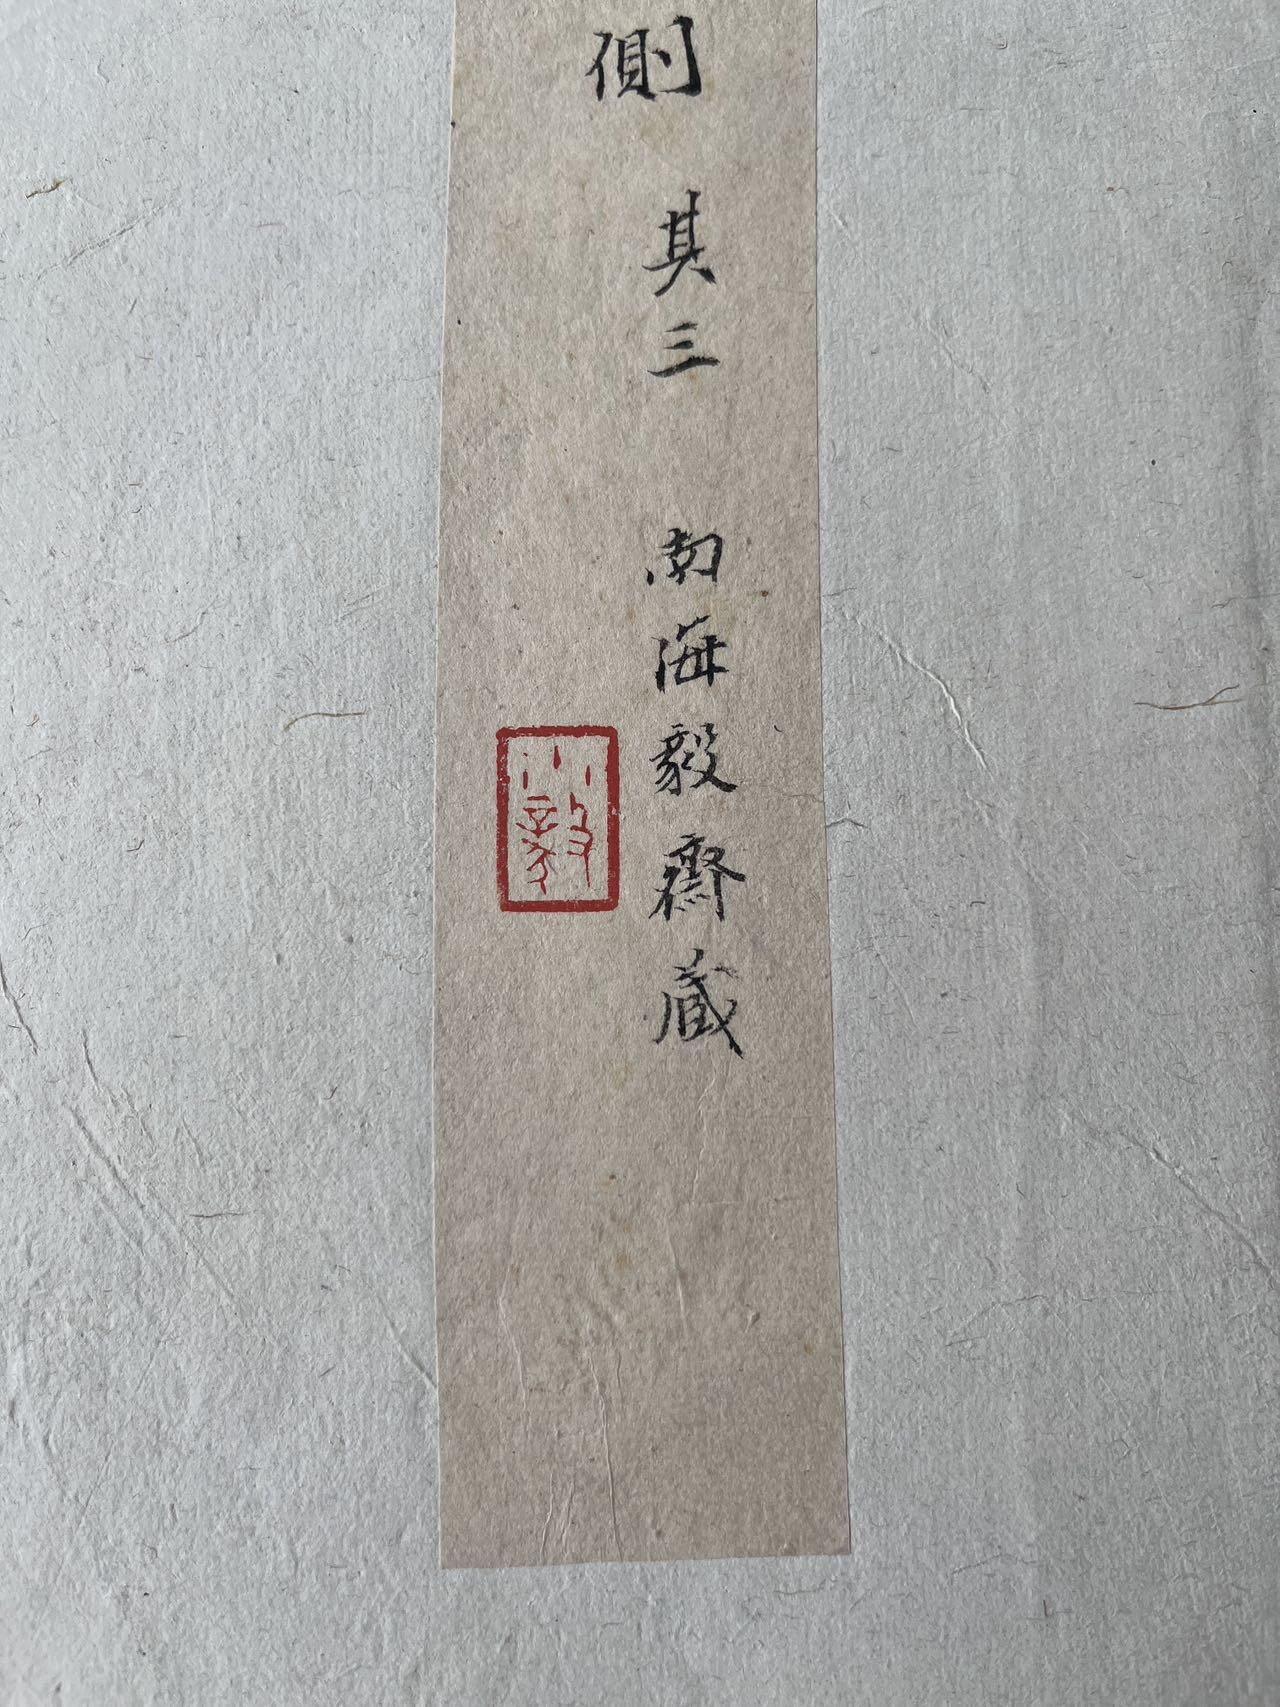 側
其三
南海毅齋藏
小毅